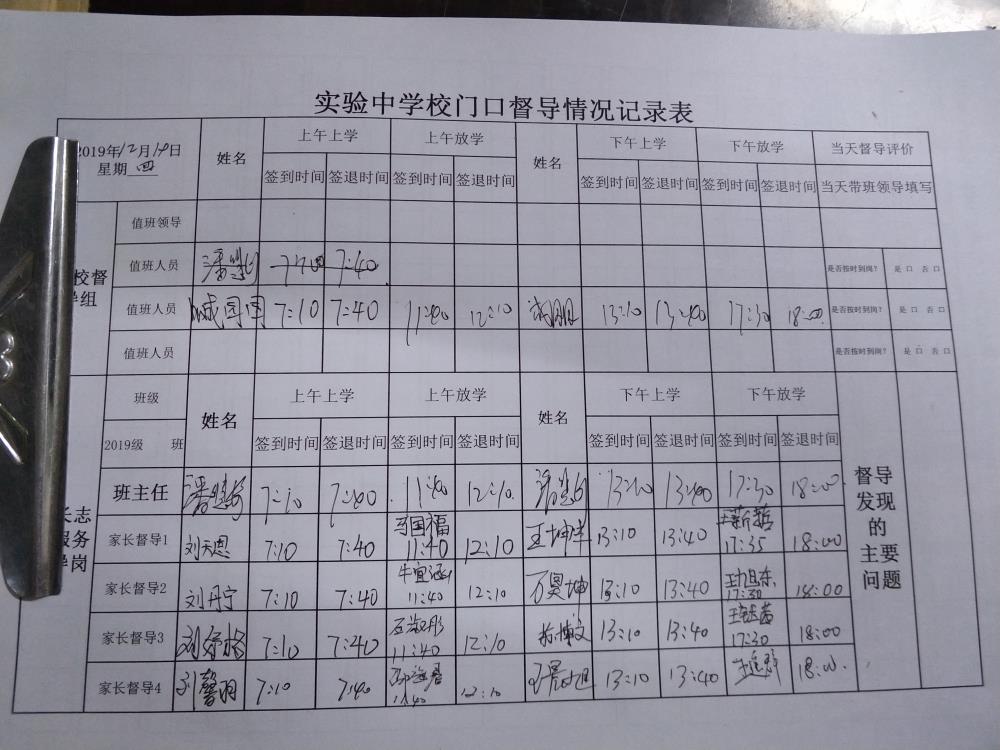 实验中学校门口督导情况记录表
2019年12月19日
星期 四
姓名 上午上学 上午放学 姓名 下午上学 下午放学 当天督导评价
签到时间 签退时间 签到时间 签退时间 签到时间 签退时间 签到时间 签退时间 当天带班领导填写
校督
导组
值班领导
值班人员 7:40 是否按时到岗? 是 口 否 口
值班人员 7:10 7:40 11:40 12:10 13:10 13:40 17:30 18:00 是否按时到岗? 是 口 否 口
值班人员 是否按时到岗? 是 口 否 口
班级 姓名 上午上学 上午放学 姓名 下午上学 下午放学
2019级 班 签到时间 签退时间 签到时间 签退时间 签到时间 签退时间 签到时间 签退时间
长志
服务
导岗
班主任 7:10 7:40 11:40 12:10 13:10 13:40 17:30 18:00
家长督导1 刘天恩 7:10 7:40 马国福 11:40 12:10 王坤 13:10 13:40 17:35 18:00
家长督导2 刘丹宁 7:10 7:40 牛宜涵 11:40 12:10 万昊坤 13:10 13:40 17:30 18:00
家长督导3 7:10 7:40 11:40 12:10 13:10 13:40 17:30 18:00
家长督导4 刘馨羽 7:10 7:40 11:40 12:10 13:10 13:40 18:00
督导
发现
的
主要
问题